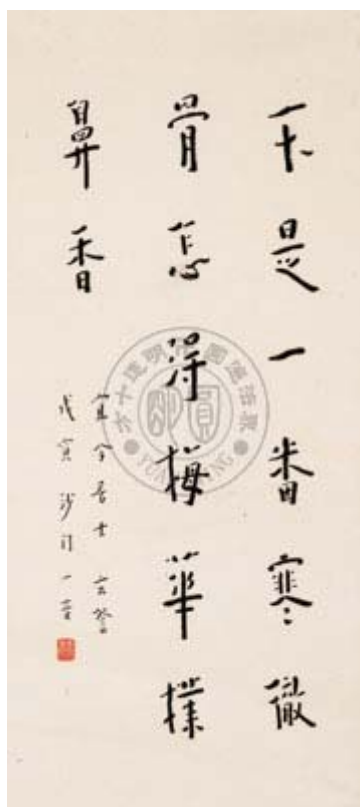 不是一番寒徹
骨怎得梅華撲
鼻香
居士
戊寅沙門一音